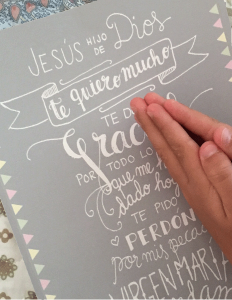 JESÚS HIJO DE Dios
te quiero mucho
TE DOY
Gracias
POR TODO LO
que me has
dado hoy
TE PIDO
PERDÓN
por mis pecados
VIRGEN MARÍA